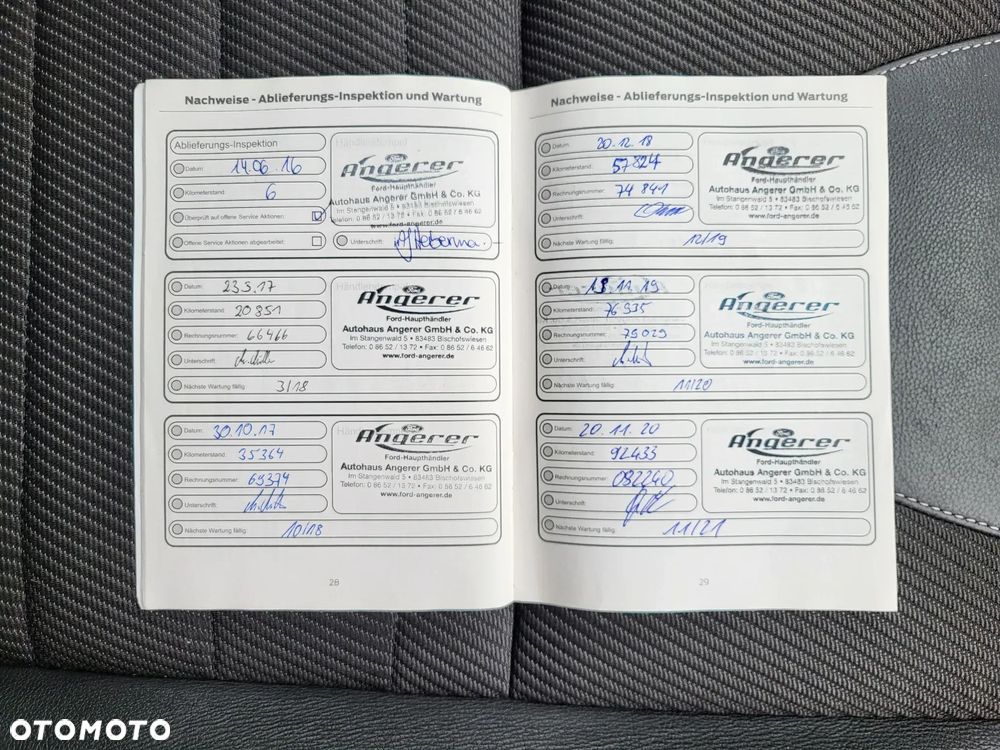 Nachweise - Ablieferungs-Inspektion und Wartung
Ablieferungs-Inspektion
Datum: 14.06.16
Kilometerstand: 6
Überprüft auf offene Service Aktionen:
Offene Service Aktionen abgearbeitet:
Ford
Angerer
Ford-Haupthändler
Autohaus Angerer GmbH & Co. KG
Im Stangenwald 5 • 83483 Bischofswiesen
Telefon: 0 86 52 / 13 72 • Fax: 0 86 52 / 6 46 62
www.ford-angerer.de
Unterschrift:
Datum: 23.3.17
Kilometerstand: 20851
Rechnungsnummer: 66466
Unterschrift:
Nächste Wartung fällig: 3/18
Ford
Angerer
Ford-Haupthändler
Autohaus Angerer GmbH & Co. KG
Im Stangenwald 5 • 83483 Bischofswiesen
Telefon: 0 86 52 / 13 72 • Fax: 0 86 52 / 6 46 62
www.ford-angerer.de
Datum: 30.10.17
Kilometerstand: 35364
Rechnungsnummer: 69374
Unterschrift:
Nächste Wartung fällig: 10/18
Ford
Angerer
Ford-Haupthändler
Autohaus Angerer GmbH & Co. KG
Im Stangenwald 5 • 83483 Bischofswiesen
Telefon: 0 86 52 / 13 72 • Fax: 0 86 52 / 6 46 62
www.ford-angerer.de
28
Nachweise - Ablieferungs-Inspektion und Wartung
Datum: 20.12.18
Kilometerstand: 57824
Rechnungsnummer: 74841
Unterschrift:
Nächste Wartung fällig: 12/19
Ford
Angerer
Ford-Haupthändler
Autohaus Angerer GmbH & Co. KG
Im Stangenwald 5 • 83483 Bischofswiesen
Telefon: 0 86 52 / 13 72 • Fax: 0 86 52 / 6 46 62
www.ford-angerer.de
Datum: 13.11.19
Kilometerstand: 76935
Rechnungsnummer: 79029
Unterschrift:
Nächste Wartung fällig: 11/20
Ford
Angerer
Ford-Haupthändler
Autohaus Angerer GmbH & Co. KG
Im Stangenwald 5 • 83483 Bischofswiesen
Telefon: 0 86 52 / 13 72 • Fax: 0 86 52 / 6 46 62
www.ford-angerer.de
Datum: 20.11.20
Kilometerstand: 92433
Rechnungsnummer: 082240
Unterschrift
Nächste Wartung fällig: 11/21
Ford
Angerer
Ford-Haupthändler
Autohaus Angerer GmbH & Co. KG
Im Stangenwald 5 • 83483 Bischofswiesen
Telefon: 0 86 52 / 13 72 • Fax: 0 86 52 / 6 46 62
www.ford-angerer.de
29
OTOMOTO